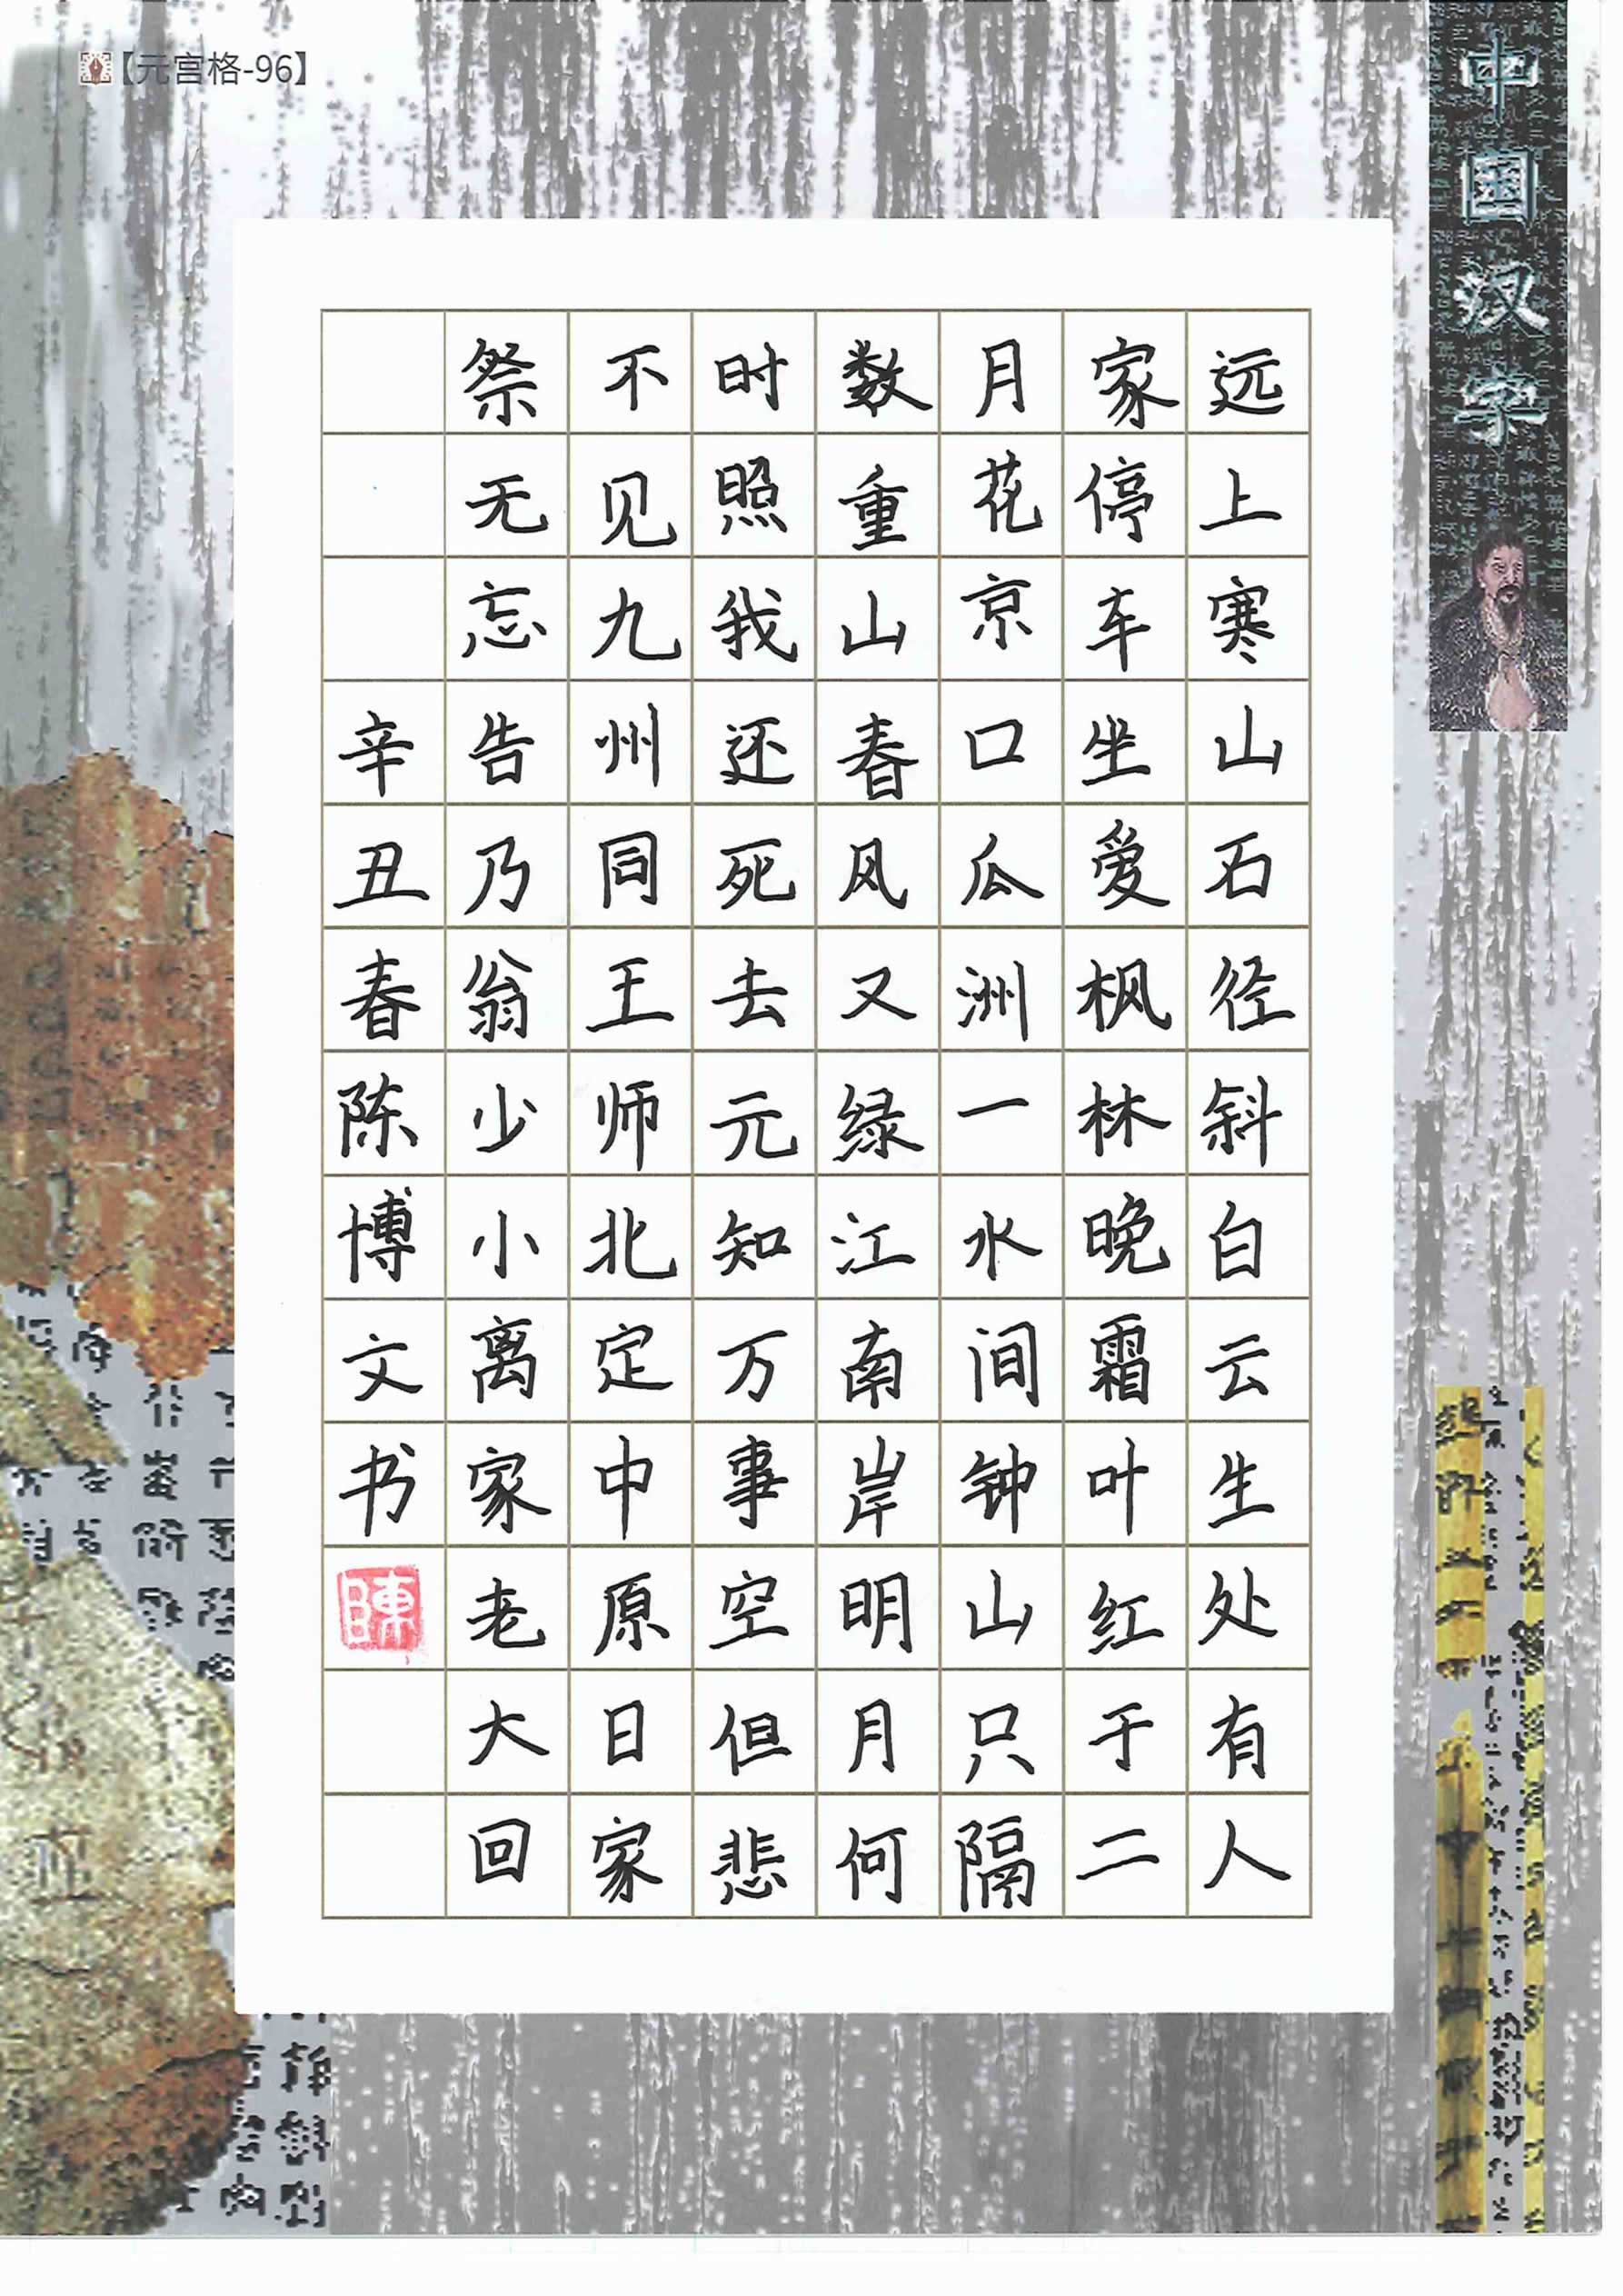 【元宫格-96】
中国汉字
远上寒山石径斜白云生处有人
家停车坐爱枫林晚霜叶红于二
月花京口瓜洲一水间钟山只隔
数重山春风又绿江南岸明月何
时照我还死去元知万事空但悲
不见九州同王师北定中原日家
祭无忘告乃翁少小离家老大回
辛丑春陈博文书
陳